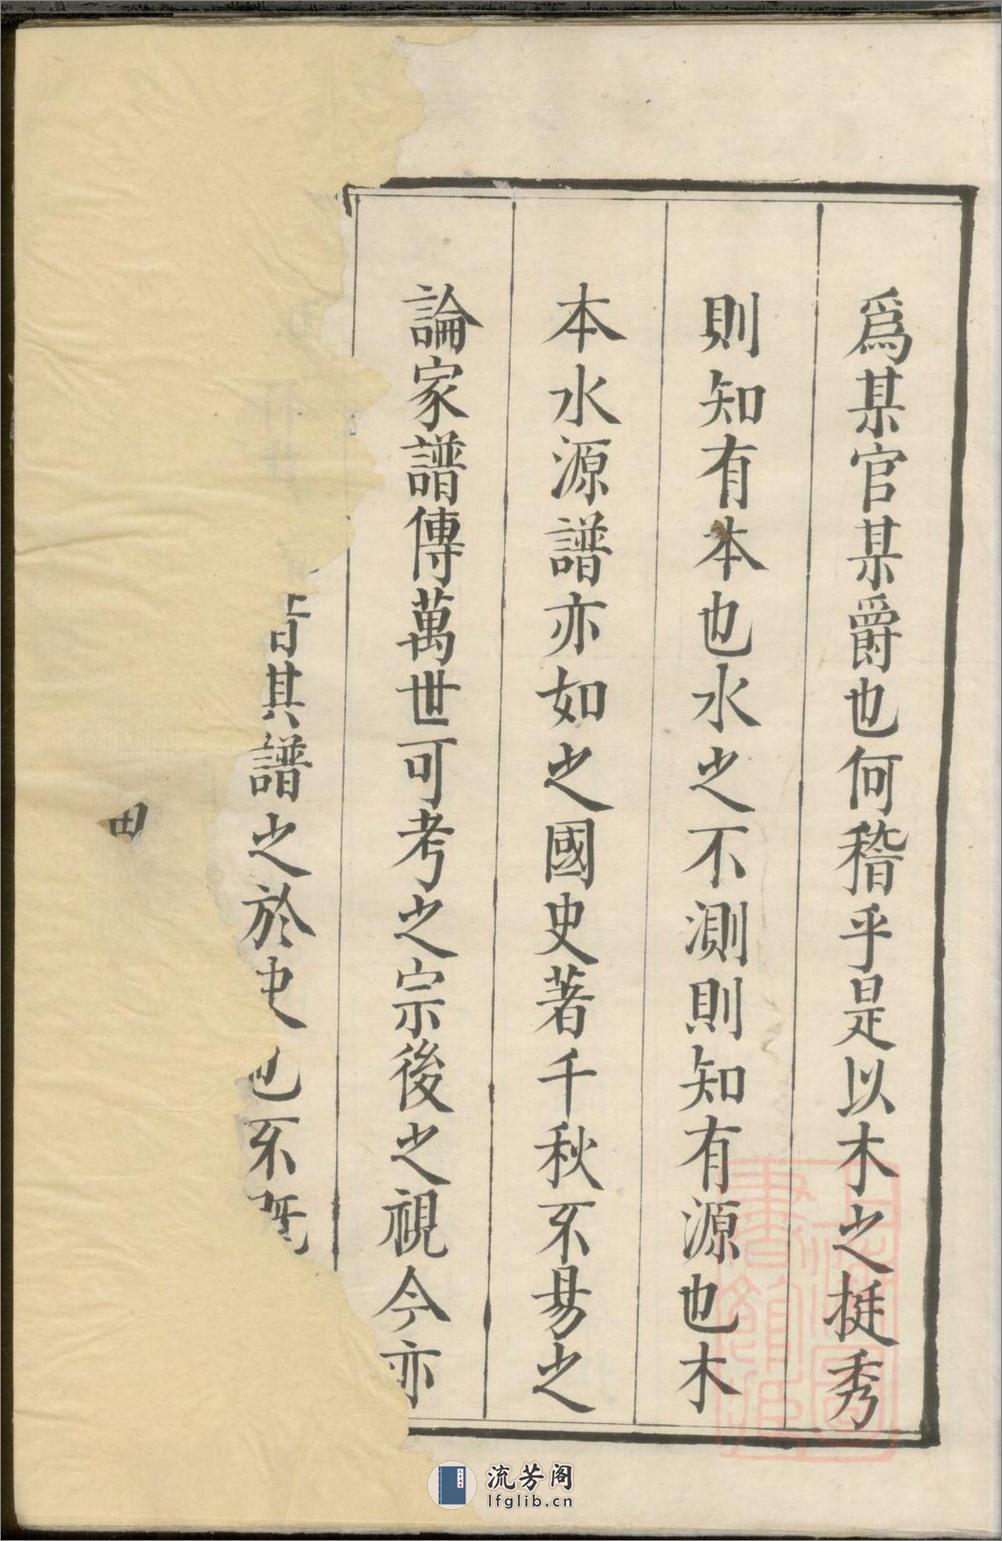 爲某官某爵也何稽乎是以木之挺秀
則知有本也水之不測則知有源也木
本水源譜亦如之國史著千秋不易之
論家譜傳萬世可考之宗後之視今亦
其譜之於史也不
流芳阁
lfglib.cn